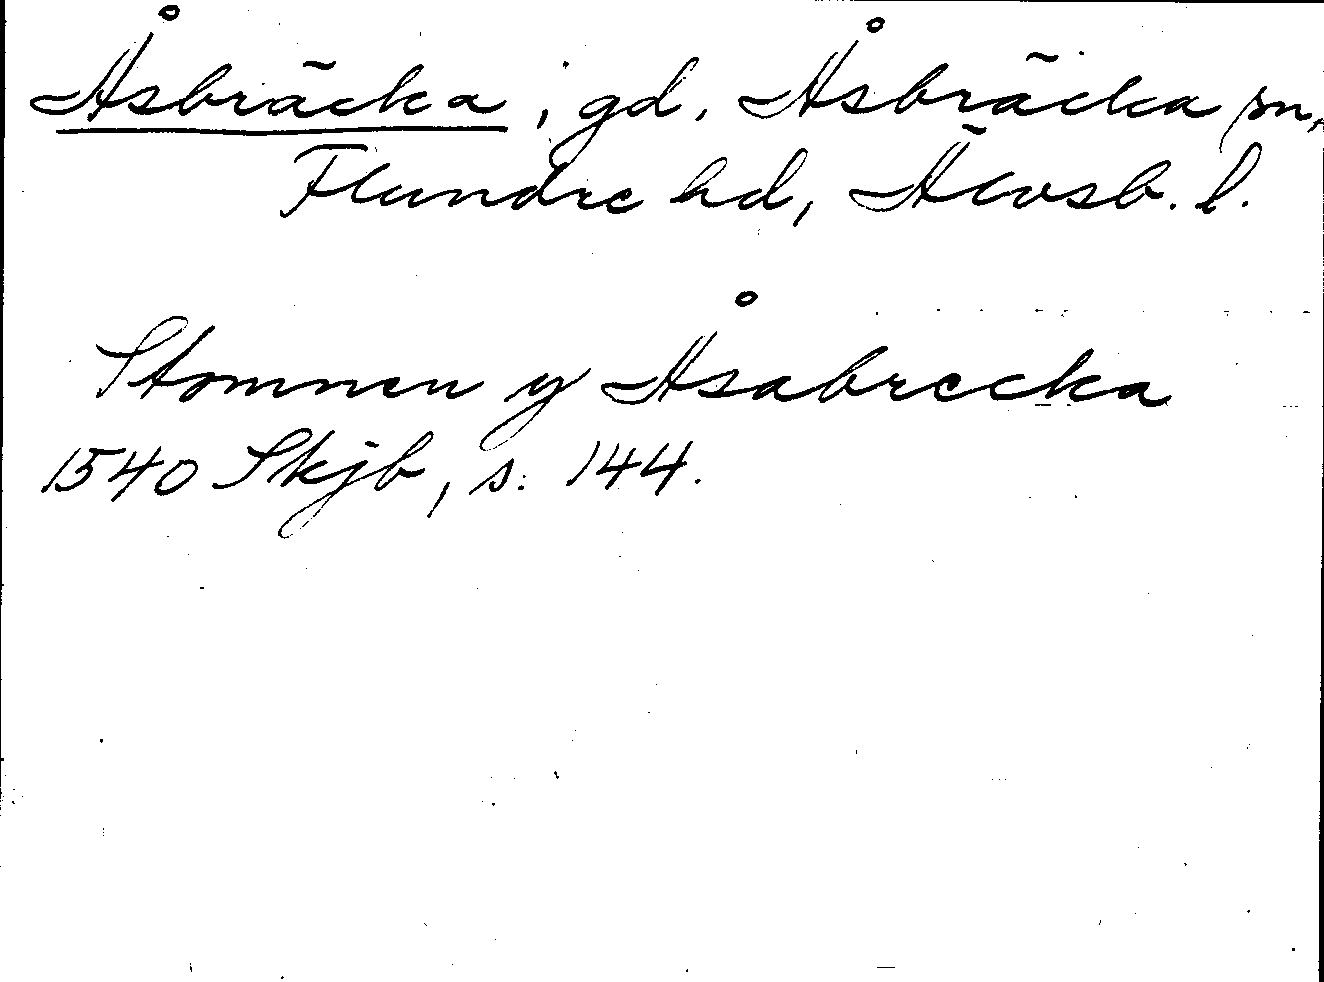 Åsbräcka, gd, Åsbräcka sn,
Flundre hd, Älvsb. l.
Stomnen y Åsabrecka
1540 Skjb, s. 144.